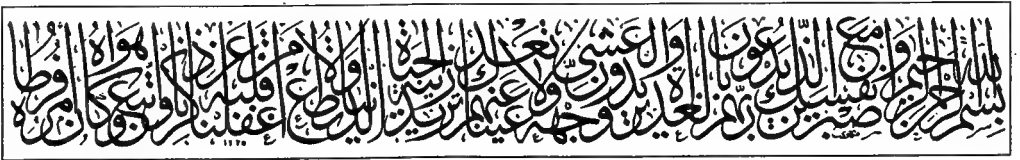 بسم الله الرحمن الرحيم واصبر نفسك مع الذين يدعون ربهم بالغداة والعشي يريدون وجهه ولا تعد عيناك عنهم تريد زينة الحياة الدنيا ولا تطع من أغفلنا قلبه عن ذكرنا واتبع هواه وكان أمره فرطا